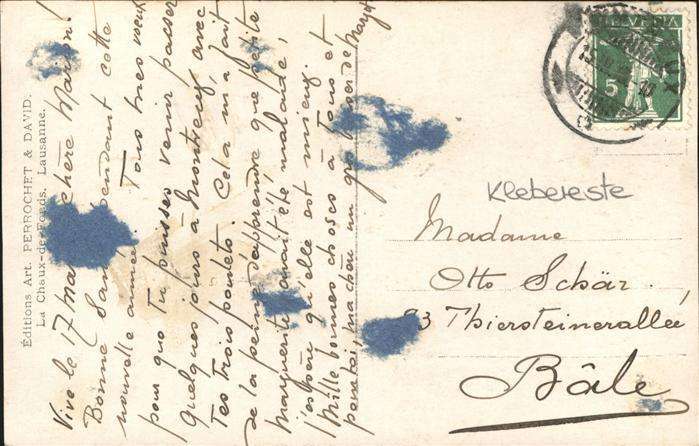 Éditions Art. PERROCHET & DAVID.
La Chaux-de-Fonds, Lausanne.
Vive le 17 mars chère Marion!
Bonne Santé pendant cette
nouvelle année. Tous mes vœux
pour que tu puisses venir passer
quelques jours à Montreux avec
Tes trois poulets. Cela m'a fait
de la peine d'apprendre que petite
Marguerite avait été malade,
j'espère qu'elle est mieux.
Mille bonnes choses à Tous et
pour toi, ma chère un gros baiser de
HELVETIA
5
Klebereste
Madame
Otto Schär.
23 Thiersteinerallée
Bâle